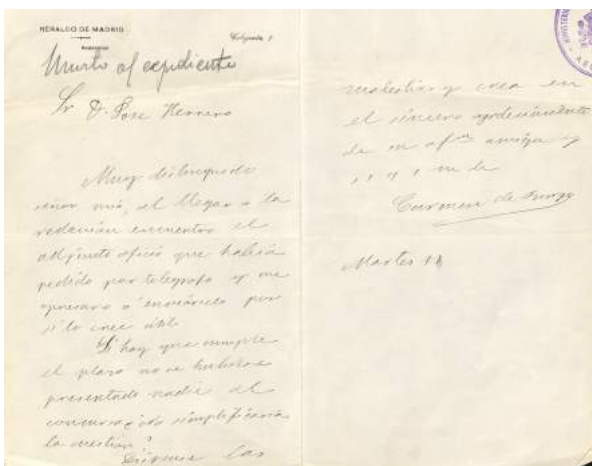 HERALDO DE MADRID
Redacción
Colegiata, 7
Unirlo al expediente
Sr D. José Herrero
Muy distinguido
señor mío, al llegar a la
redacción encuentro el
adjunto oficio que había
pedido por telégrafo y me
apresuro a enviárselo por
si lo cree útil
Si hoy que cumple
el plazo no se hubiera
presentado nadie al
concurso ¿no simplificaría
la cuestión?
Dispense las
molestias y crea en
el sincero agradecimiento
de su afma amiga y
Carmen de Burgos
Martes 18
MINISTER